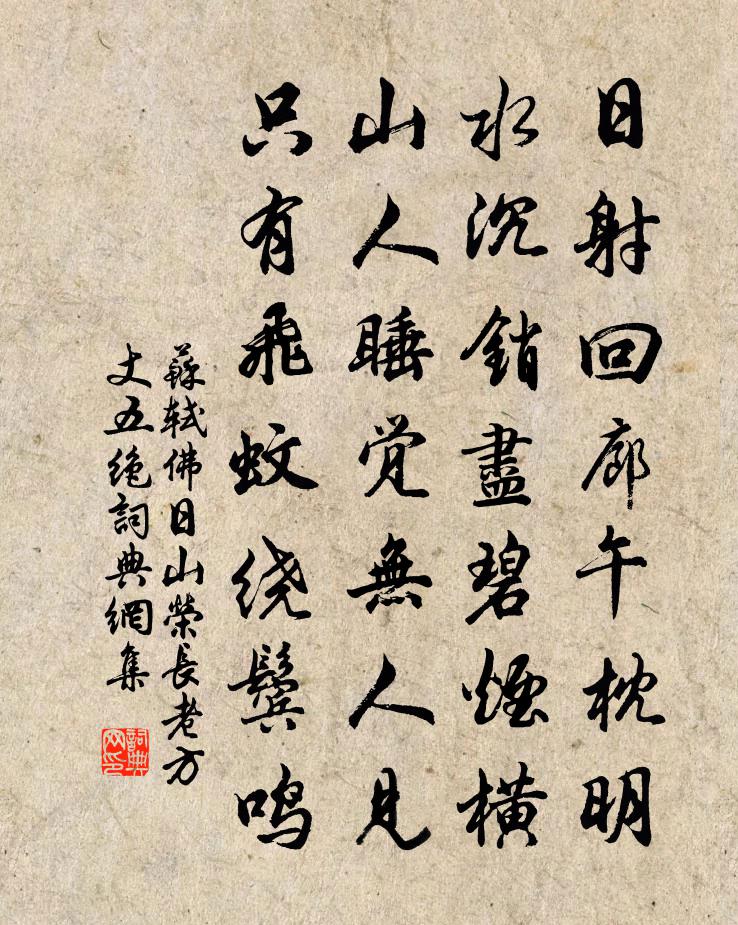 日射回廊午枕明
水沉銷盡碧煙橫
山人睡觉無人見
只有飛蚊绕鬓鸣
蘇軾佛日山榮長老方
丈五絶詞典網集
詞典
网印